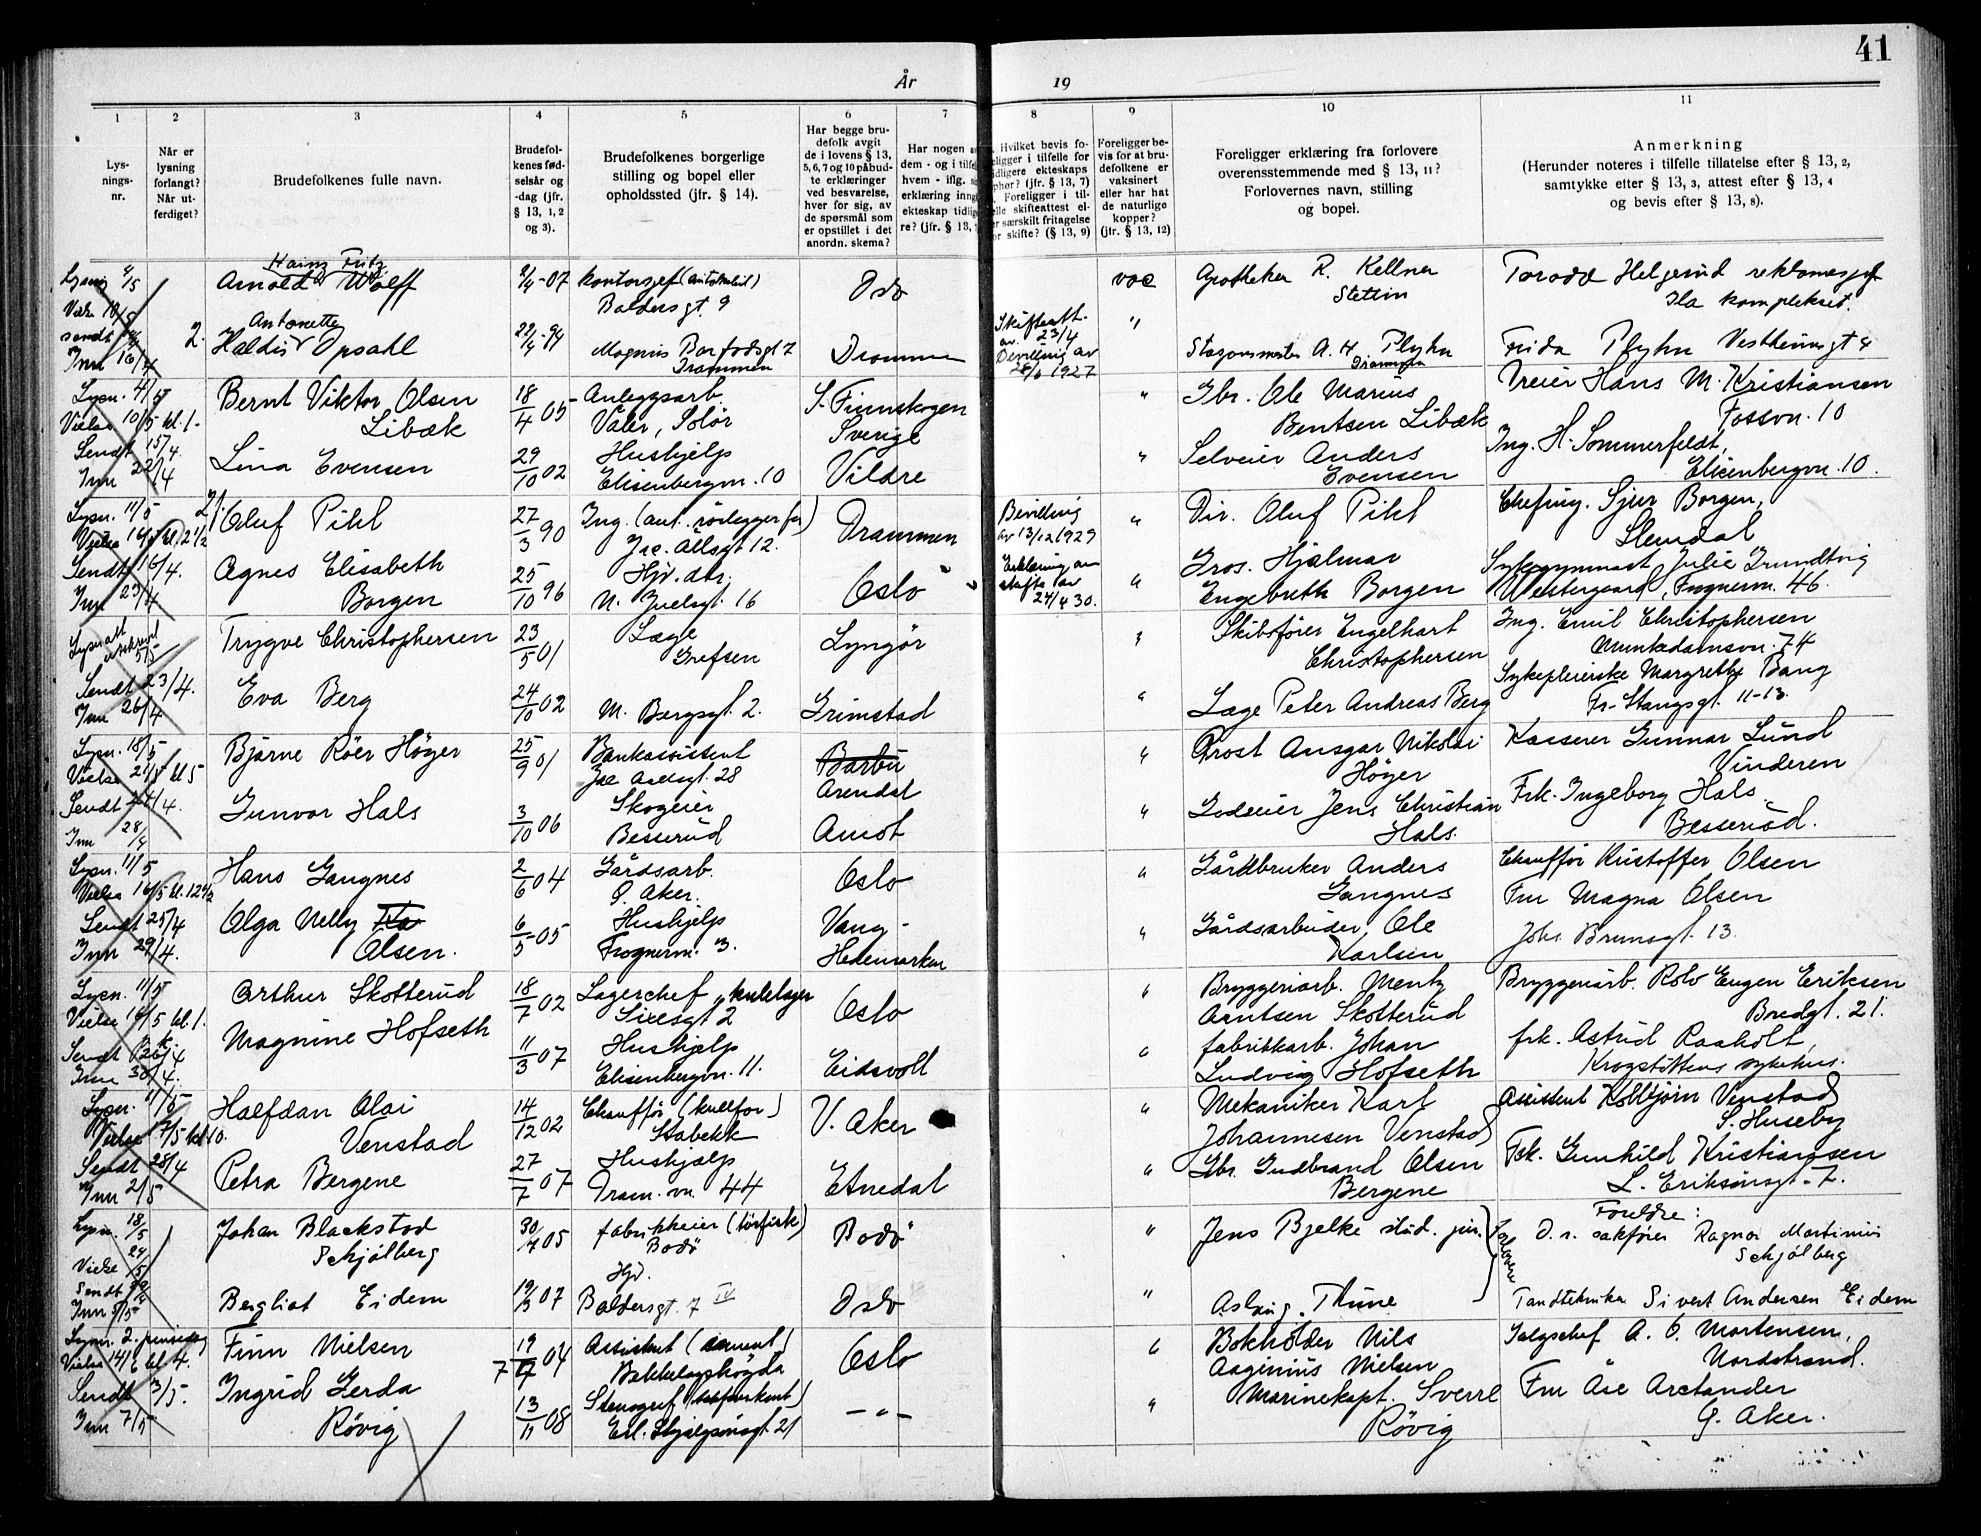 41
År
19
1
2
3
4
5
6
7
8
9
10
11
Lys-
nings-
nr.
Når er
lysning
forlangt?
Når ut-
ferdiget?
Brudefolkenes fulle navn.
Brudefol-
kenes fød-
selsår og
-dag (jfr.
§ 13, 1, 2
og 3).
Brudefolkenes borgerlige
stilling og bopel eller
opholdssted (jfr. § 14).
Har begge bru-
defolk avgit
de i lovens § 13,
5, 6, 7 og 10 påbud-
te erklæringer
ved besvarelse,
hver for sig, av
de spørsmål som
er opstillet i det
anordn. skema?
Har nogen
dem - og i
hvem - iflg.
erklæring
ekteskap
re? (jfr. § 13,
Hvilket bevis fo-
religger i tilfelle for
tidligere ekteskaps
ophør? (jfr. § 13, 7)
Foreligger i til-
felle skifteattest el-
er særskilt fritagelse
or skifte? (§ 13, 9)
Foreligger be-
vis for at bru-
defolkene er
vaksinert
eller har hat
de naturlige
kopper?
(jfr. § 13, 12)
Foreligger erklæring fra forlovere
overensstemmende med § 13, 11?
Forlovernes navn, stilling
og bopel.
Anmerkning
(Herunder noteres i tilfelle tillatelse efter § 13, 2,
samtykke efter § 13, 3, attest efter § 13, 4
og bevis efter § 13, 8).
Heinz Fritz
Arnold Wolff
2/4-07
Baldersgt 9
Oslo
vac
Apotheker R. Kellner
Stettin
Ila komplekset.
2.
Antonette
Haldis Opsahl
22/4-94
Drammen
23/4
Bevilling av
28/6 1927
A. H. Plyhn
Drammen
Frida Plyhn Vestheimsgt 4
Lysn. 4/5
Vielse 10/5 kl. 1-
Sendt 15/4.
Inn 22/4
Bernt Viktor Olsen
Libæk
18/4 05
Anleggsarb.
Våler, Solør
S. Finnskogen
Sverige
Gbr. Ole Marius
Bentsen Libæk
Hans M. Kristiansen
Fossvn. 10
Lina Evensen
29/10 02
Hushjelp
Elisenbergvn. 10
Vildre
Selveier Anders
Evensen
Ing. H. Sommerfeldt,
Elisenbergvn. 10.
Lysn. 11/5
Sendt 16/4.
Inn 23/4
2/
Oluf Pihl
27/3 90
Drammen
Bevilling
av 13/12 1929
Dir. Oluf Pihl
Chefing. Sjur Borgen,
Slemdal
Agnes Elisabeth
Borgen
25/10 96
Hjv. dtr.
N. Juelsgt. 16
Oslo
Erklæring om
skifte av
24/4 30.
Gros. Hjalmar
Engebreth Borgen
Sykegymnast Julie Grundtvig
Westergaard, Frognerv. 46.
Sendt 23/4.
Inn 26/4
Trygve Christophersen
23/5 01
Læge
Grefsen
Lyngör
Skibsfører Engelhart
Christophersen
Ing. Emil Christophersen
Munkedamsvn. 74
Eva Berg
24/10 02
M. Bergsgt. 2.
Grimstad
Læge Peter Andreas Berg
Sykepleierske Margrethe Bang
Fr. Stangsgt. 11-13.
Lysn. 18/5
Vielse 21/5 kl 5
Sendt 24/4.
Inn 28/4
Bjarne Röer Höyer
25/9 01
Bankassistent
Jac Aallsgt. 28
Barbu
Arendal
Prost Ansgar Nikolai
Höyer
Kasserer Gunnar Lund
Vinderen
Gunvor Hals
3/10 06
Skogeier
Besserud
Amot
Godseier Jens Christian
Hals.
Frk. Ingeborg Hals
Besserud.
Lysn. 11/5
Vielse 16/5 kl. 12 1/2
Sendt 25/4
Inn 29/4.
Hans Gangnes
2/6 04
Gårdsarb.
Ö. Aker.
Oslo
Gårdbruker Anders
Gangnes
Chauffør Kristoffer Olsen
Olga Nelly
Olsen.
6/5-05
Hushjelp
Frognerv. 3.
Vang -
Hedemarken
Gårdsarbeider Ole
Karlsen
Fru Magna Olsen
Johs. Brunsgt. 13.
Lysn. 11/5
Sendt 26/4
Inn 30/4.
Arthur Skotterud
18/7 02
Lagerchef
Oslo
Bryggeriarb. Mentz
Arntsen Skotterud
Bryggeriarb. Rolv Eugen Eriksen
Bredgt. 21.
Magnine Hofseth
11/3 07
Hushjelp
Elisenbergvn. 11.
Eidsvoll
fabrikkarb. Johan
Ludvig Hofseth
frk. Astrid Raaholt,
Krogstöttens sykehus.
Lysn. 11/5
Sendt 28/4
Inn 2/5
Halfdan Olai
Venstad
14/12 02
Chauffør
Stabekk
V. Aker
Mekaniker Karl
Johannesen Venstad
Assistent Kolbjörn Venstad
S. Huseby
Petra Bergene
27/7 07
Hushjælp
Dram. vn. 44
Etnedal
Gbr. Gudbrand Olsen
Bergene
Frk. Gunhild Kristiansen
L. Eriksönsgt. 7.
Lysn. 18/5
Vielse 24/5
Sendt 29/4
Inn 5/5
Johan Blackstad
Schjölberg
30/7 05
Bodö
Bodö
Jens Bjelke stud. jur.
Forlovere
Foreldre:
O. r. sakfører Ragnar Martinius
Schjölberg
Bergliot Eidem
19/3 07
Hjv.
Baldersgt. 7 IV
Oslo
Aslaug Thune
Tandtekniker Sivert Andersen Eidem
Lysn. 2. pinsedag
Vielse 14/6 kl 4.
Sendt 3/5.
Inn 7/5
Finn Nielsen
19/7 04
Bækkelagshögda
Oslo
Bokholder Nils
Nielsen
Salgschef A. O. Mortensen,
Nordstrand.
Ingrid Gerda
Rövig
13/11 08
-"-
Marinekapt. Sverre
Rövig
Fru Åse Arctander
Ö. Aker.